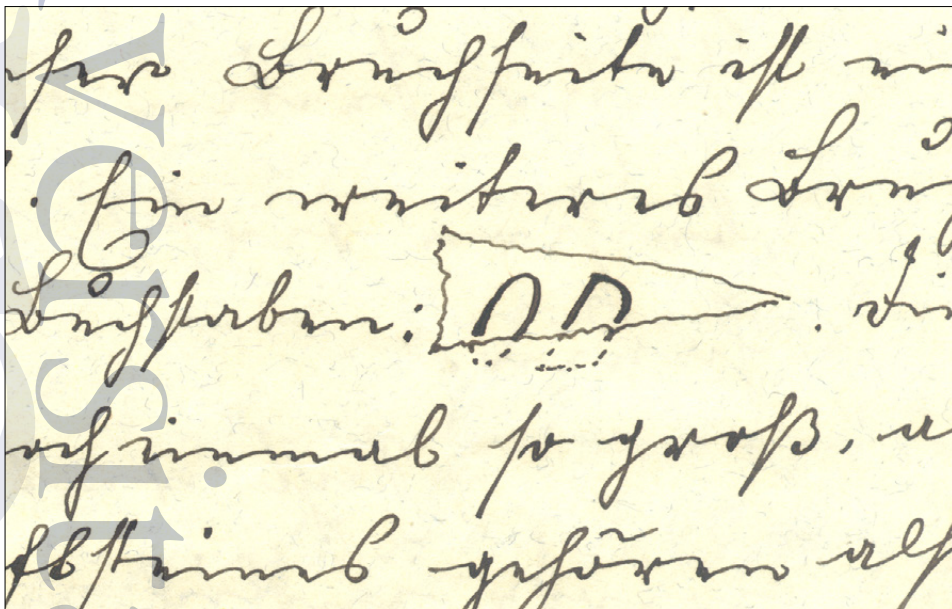 ser Bruchseite ist ei
. Ein weiteres Bru
Buchstaben: . Die
ocheinmal so groß, a
steines gehören als